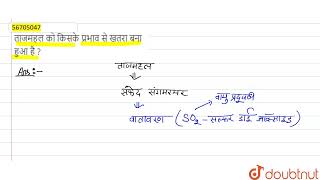 56705047
ताजमहल को किसके प्रभाव से खतरा बना
हुआ है ?
Ans:-
ताजमहल
⇓
सफेद संगमरमर
⇓ वायु प्रदूषकों
वातावरण (SO₂ - सल्फर डाई ऑक्साइड)
doubtnut